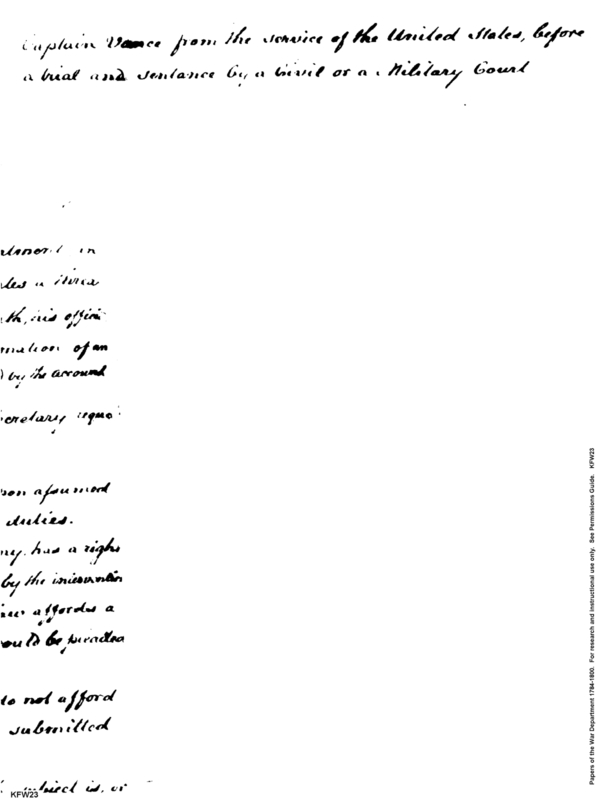 Captain Vance from the service of the United States, before
a trial and sentance by a Civil or a Military Court
in
a
th, his offic
mation of an
by the account
cretary
son assumed
duties.
ny. has a righ
by the intervention
affords a
ould be pleaded
do not afford
submitted
is, or
KFW23
Papers of the War Department 1784-1800. For research and instructional use only. See Permissions Guide. KFW23